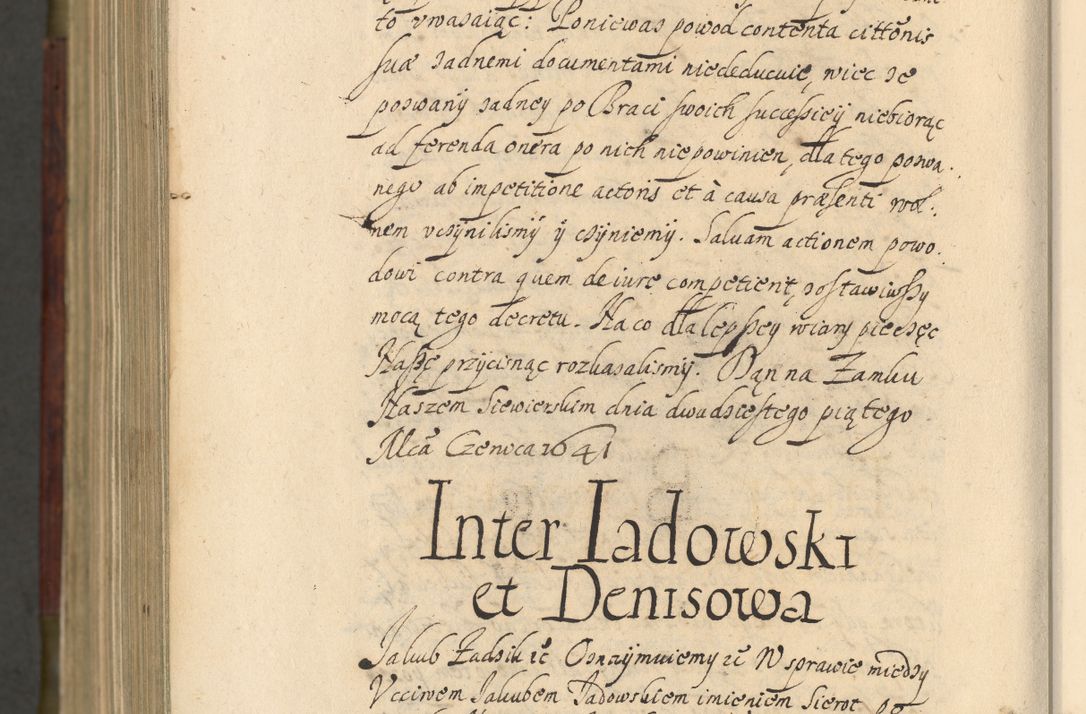 to vwasaiąc: Poniewas powod contenta cittōnis
suæ zadnemi documentami niededucuię, więc że
poswany zadney po Braci swoich successiey niebiorąc
ad ferenda onera po nich niepowinien, dla tego poswa.
nego ab impetitione actoris et à causa præsenti wol.
nem vczynilismy ÿ czyniemy. Saluam actionem powo.
dowi contra quem de iure competient, zostawiwszy
mocą tego decretu. Na co dla lepszey wiary pieczęc
Naszę przycisnąc rozkasalismy. Dan na Zamku
Naszem Siewierskim dnia dwudziestego piątego
Mcā Czerwca 1641
Inter Iadowski
et Denisowa
Jakub Zadzik ec Oznaymuiemy ec W sprawie między
Vcciwem Jakubem Jadowskiem imieniem Sierot